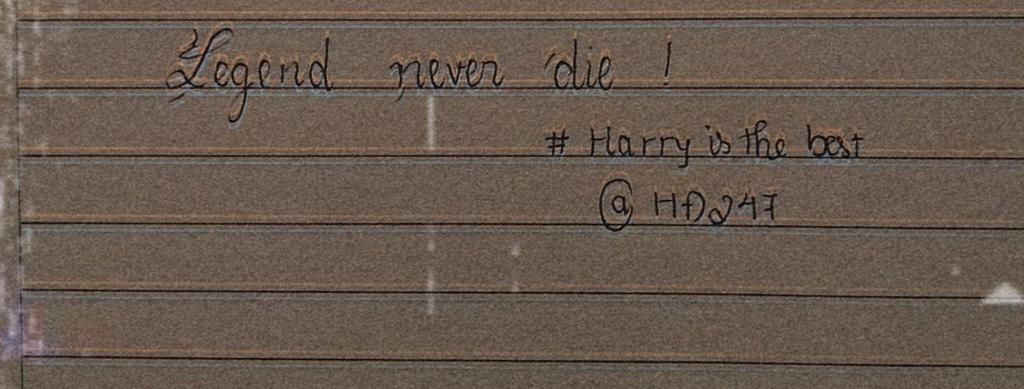 Legend never die !
# Harry is the best
@ HD247